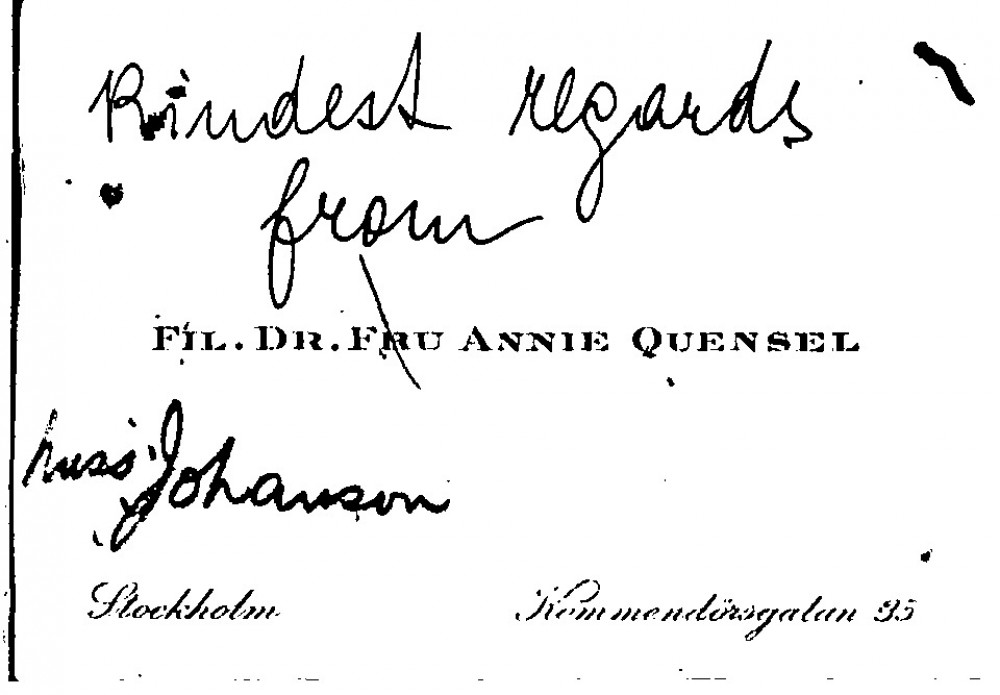 Kindest regards
from
FIL. DR. FRU ANNIE QUENSEL
Miss Johanson
Stockholm Kommendörsgatan 35